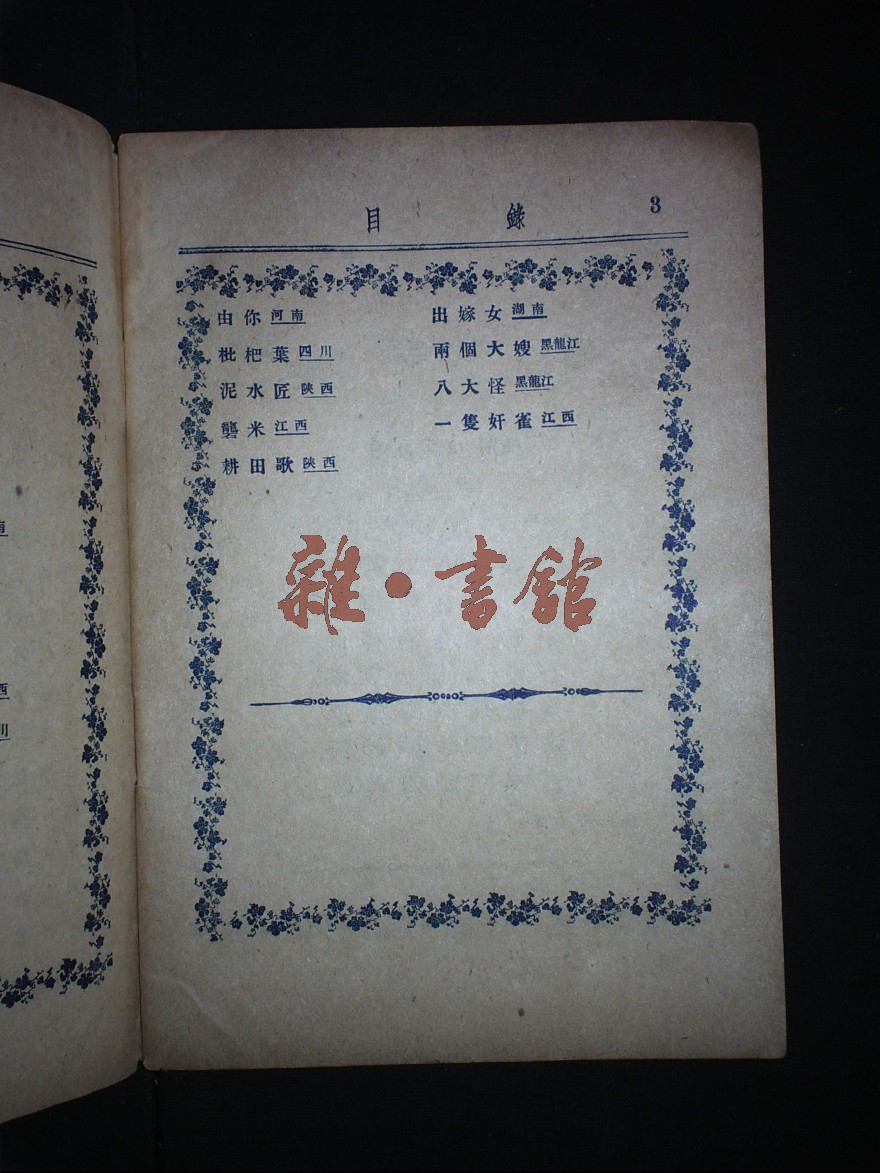 目錄 3
由你 河南
枇杷葉 四川
泥水匠 陝西
礱米 江西
耕田歌 陝西
出嫁女 湖南
兩個大嫂 黑龍江
八大怪 黑龍江
一隻奸雀 江西
雜·書館
西
川